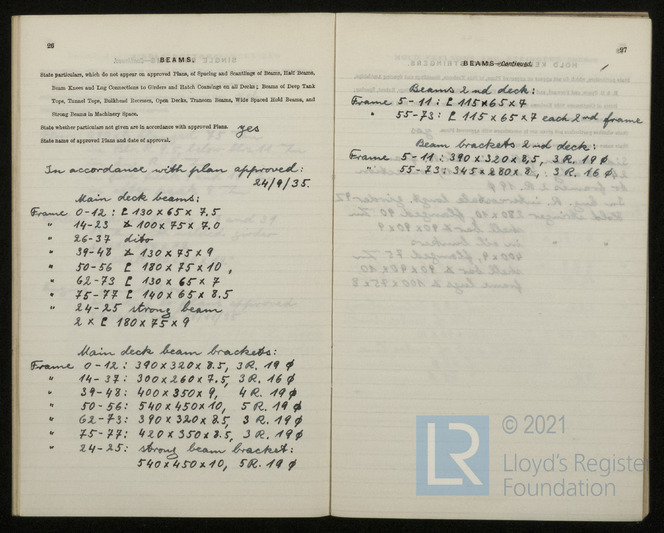 26
BEAMS.
State particulars, which do not appear on approved Plans, of Spacing and Scantlings of Beams, Half Beams,
Beam Knees and Lug Connections to Girders and Hatch Coamings on all Decks; Beams of Deep Tank
Tops, Tunnel Tops, Bulkhead Recesses, Open Decks, Transom Beams, Wide Spaced Hold Beams, and
Strong Beams in Machinery Space.
State whether particulars not given are in accordance with approved Plans. yes
State name of approved Plans and date of approval.
In accordance with plan approved:
24/9/35.
Main deck beams:
Frame 0-12: [ 130 x 65 x 7.5
" 14-23 100 x 75 x 7.0
" 26-37 dito
" 39-48 130 x 75 x 9
" 50-56 [ 180 x 75 x 10
" 62-73 [ 130 x 65 x 7
" 75-77 [ 140 x 65 x 8.5
" 24-25 strong beam
2 x [ 180 x 75 x 9
Main deck beam brackets:
Frame 0-12: 390 x 320 x 8.5, 3 R. 19 ϕ
" 14-37: 300 x 260 x 7.5, 3 R. 16 ϕ
" 39-48: 400 x 350 x 9, 4 R. 19 ϕ
" 50-56: 540 x 450 x 10, 5 R. 19 ϕ
" 62-73: 390 x 320 x 8.5, 3 R. 19 ϕ
" 75-77: 420 x 350 x 8.5, 3 R. 19 ϕ
" 24-25: strong beam bracket:
540 x 450 x 10, 5 R. 19 ϕ
27
BEAMS—Continued.
Beams 2nd deck:
Frame 5-11: [ 115 x 65 x 7
" 55-73: [ 115 x 65 x 7 each 2nd frame
Beam brackets 2nd deck:
Frame 5-11: 390 x 320 x 8,5, 3 R. 19 ϕ
" 55-73: 345 x 280 x 8, 3 R. 16 ϕ
LR
© 2021
Lloyd's Register
Foundation